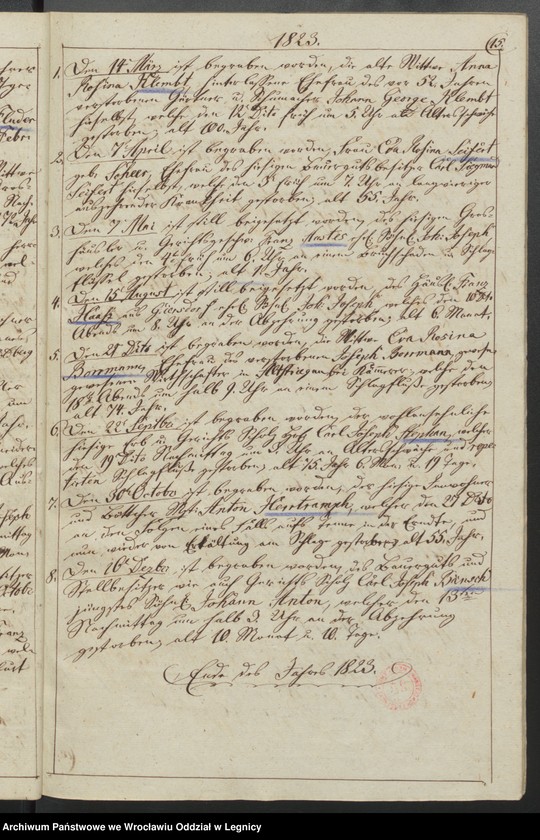 1823.
15.
1. Den 14 März ist begraben worden, die alte Wittwe Anna
Rosina Klembt, hinterlassene Ehefrau des vor 52 Jahren
verstorbenen Gärtner u. Schumacher Johann George Klembt
hieselbst, welche den 12 Dito früh um 5. Uhr an Altersschwäche
gestorben, alt 100. Jahr.
2. Den 7 April ist begraben worden, Frau Eva Rosina Seifert
geb. Ehefrau des hiesigen Bauergutsbesitzer Carl
Seifert hieselbst, welche den 3 früh um 7. Uhr an langwieriger
Krankheit gestorben, alt 55. Jahr.
3. Den 7 Mai ist still beigesetzt worden, des hiesigen
häusler u. Gerichtsgeschw. Franz ehel. Söhnl. Joh. Joseph
welches den 4 früh um 6. Uhr an einem
gestorben, alt Jahr.
4. Den 15 August ist still beigesetzt worden, des Häusl. Franz
aus ehel. Söhnl. Joh. Joseph welches den
Abends um 8. Uhr an der Abzehrung gestorben, alt 6. Monat.
5. Den 21 Dito ist begraben worden, die Wittwe Eva Rosina
Borrmann, Ehefrau des verstorbenen Joseph Borrmann,
gewesenen bei welche den
18 Abends um halb 9. Uhr an einem Schlagfluße gestorben
alt 74. Jahr.
6. Den 22 Septbr ist begraben worden, der wohlansehnliche
hiesige Erb u. Gerichts Scholz Carl Joseph welcher
den 19 Dito Nachmittag um 3. Uhr an Altersschwäche und
Schlagfluße gestorben, alt 75. Jahr 6. Mon. u. 19 Tage.
7. Den 30 Octobr ist begraben worden, der hiesige Inwohner
und Anton welcher den 27 Dito
an den Folgen eines Falls auf der Tenne in der Erndte, und
nun wieder von Erkältung am Schlage gestorben, alt 55. Jahr.
8. Den 16 Dezbr ist begraben worden, des Bauerguts und
Stellbesitzer wie auch Gerichts Scholz Carl Joseph
jüngstes Söhnl. Johann Anton, welcher den 13
Nachmittag um halb 3. Uhr an der Abzehrung
gestorben, alt 10. Monat u. 10. Tage.
Ende des Jahres 1823.
Archiwum Państwowe we Wrocławiu Oddział w Legnicy